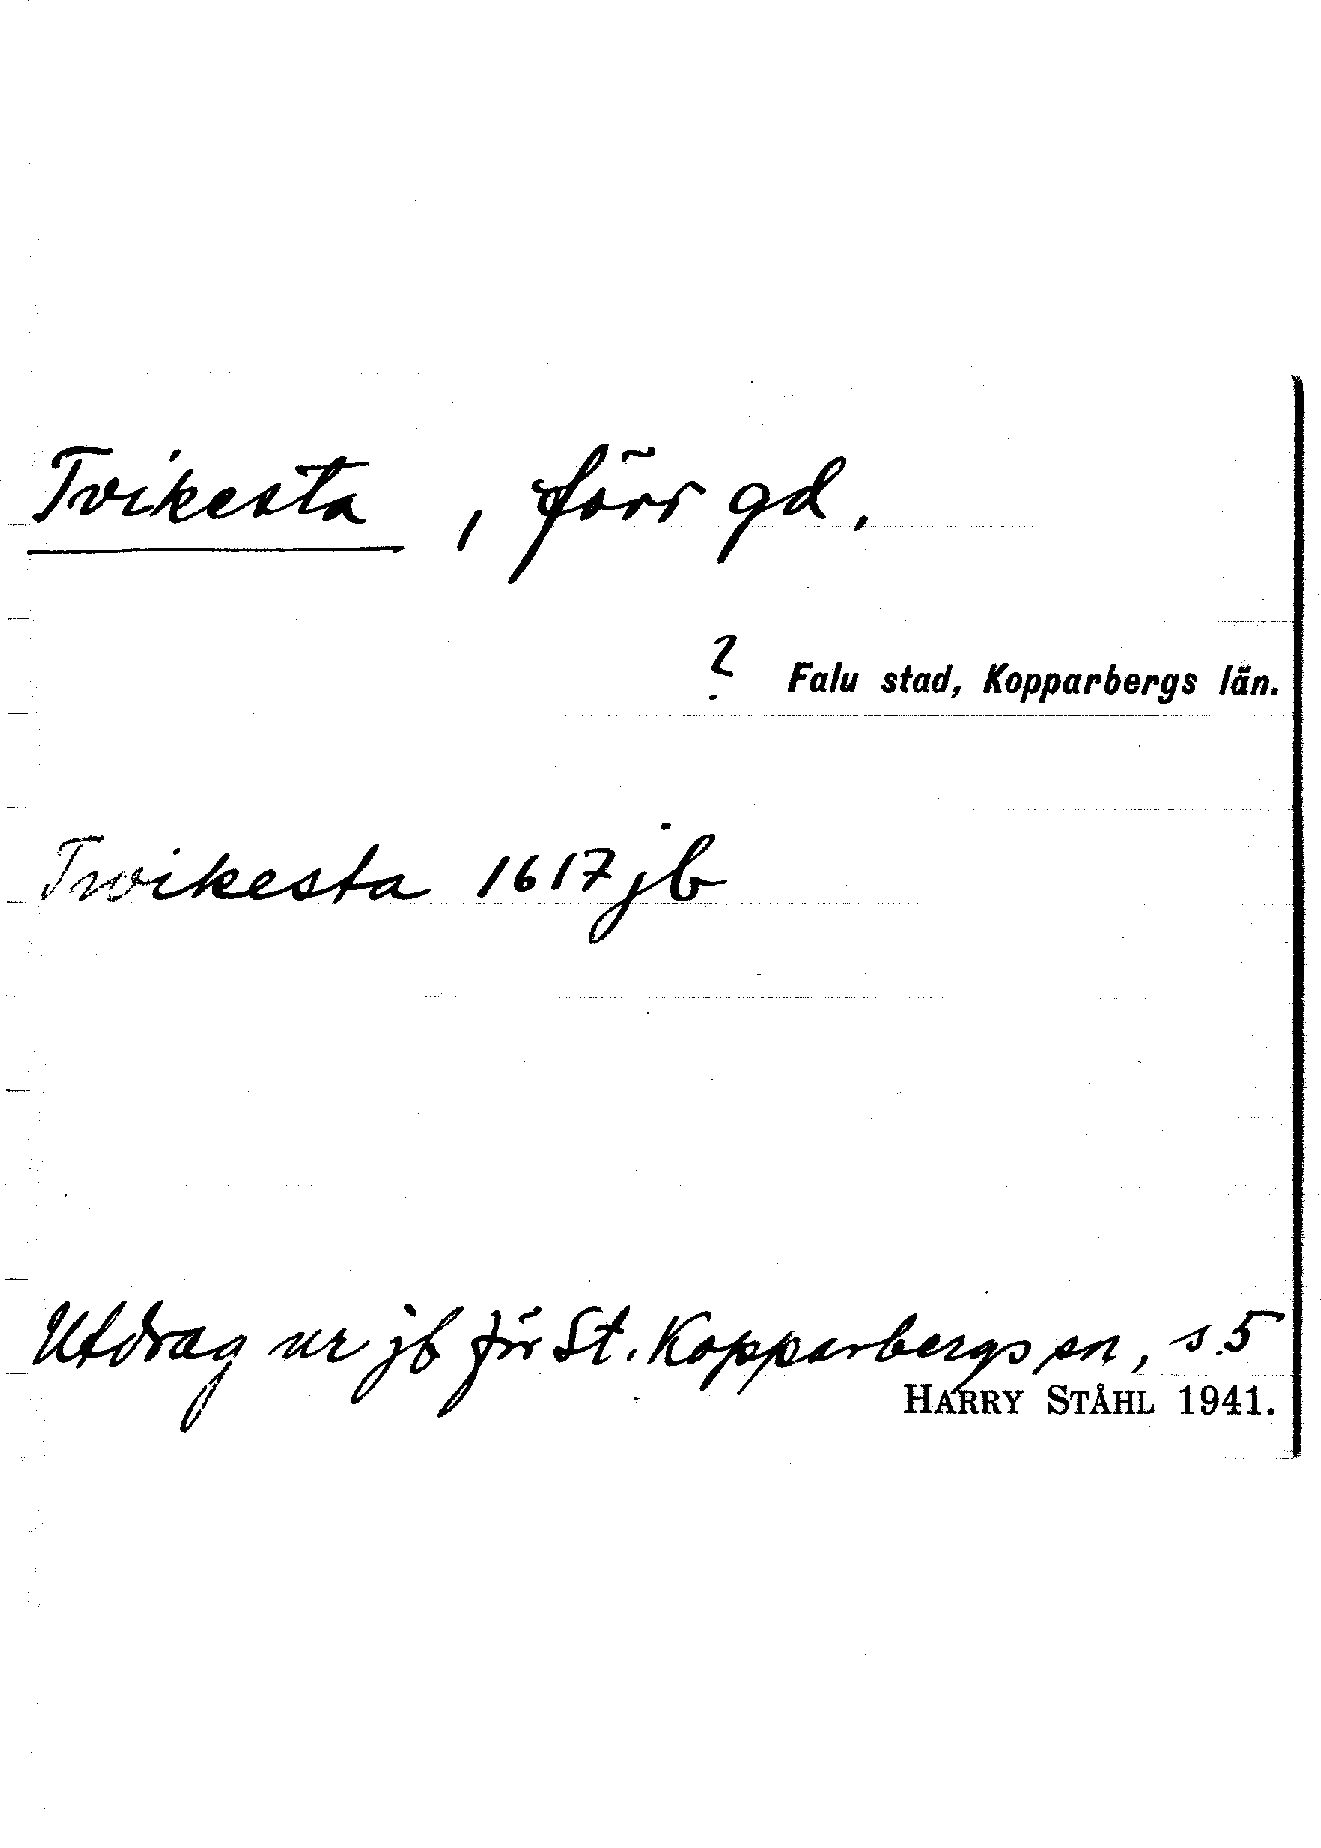 Tvikesta, förr gd.
? Falu stad, Kopparbergs län.
Twikesta 1617 jb
Utdrag ur jb för St. Kopparbergs sn, s. 5
HARRY STÅHL 1941.